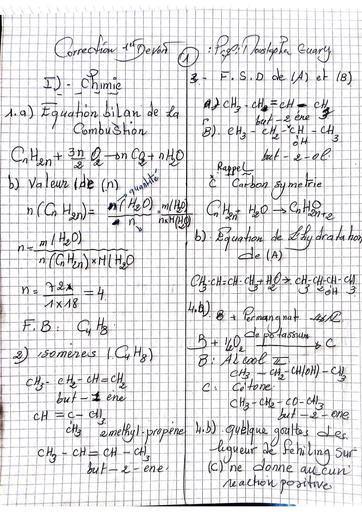 Correction 1st Devoir
1
: Prof: Moustapha
I) - Chimie
1. a) Equation bilan de la
Combustion
CnH2n + 3n/2 O2 → nCO2 + nH2O
b) Valeur de (n)
quantité
n(CnH2n) = n(H2O)/n = m(H2O)/n×M(H2O)
n = m(H2O)/n(CnH2n)×M(H2O
n = 72/1×18 = 4
F.B: C4H8
2) isomères (C4H8)
CH3 - CH2 - CH = CH2
but-1 ene
CH = C - CH3
CH3 2methyl-propène
CH3 - CH = CH - CH3
but-2-ene
3 - F.S.D de (A) et (B)
a) CH3 - CH = CH - CH3
but-2 ene
B). CH3 - CH2 - CH - CH3
OH
but-2-ol
Rappel
C Carbon symetrie
CnH2n + H2O → CnH2n+2
b) Equation de L'hydratation
de (A)
CH3-CH=CH-CH3+H2O → CH3-CH2-CH-CH3
OH
4.a)
B + Permangnat
de potassium
B + 1/2O2 → C
B: ALcool II
CH3 - CH2 - CH(OH) - CH3
C: Cétone
CH3 - CH2 - CO - CH3
but-2-one
4.b) quelque gouttes des
liqueur de Fehiling sur
(C) ne donne aucun
reaction positive